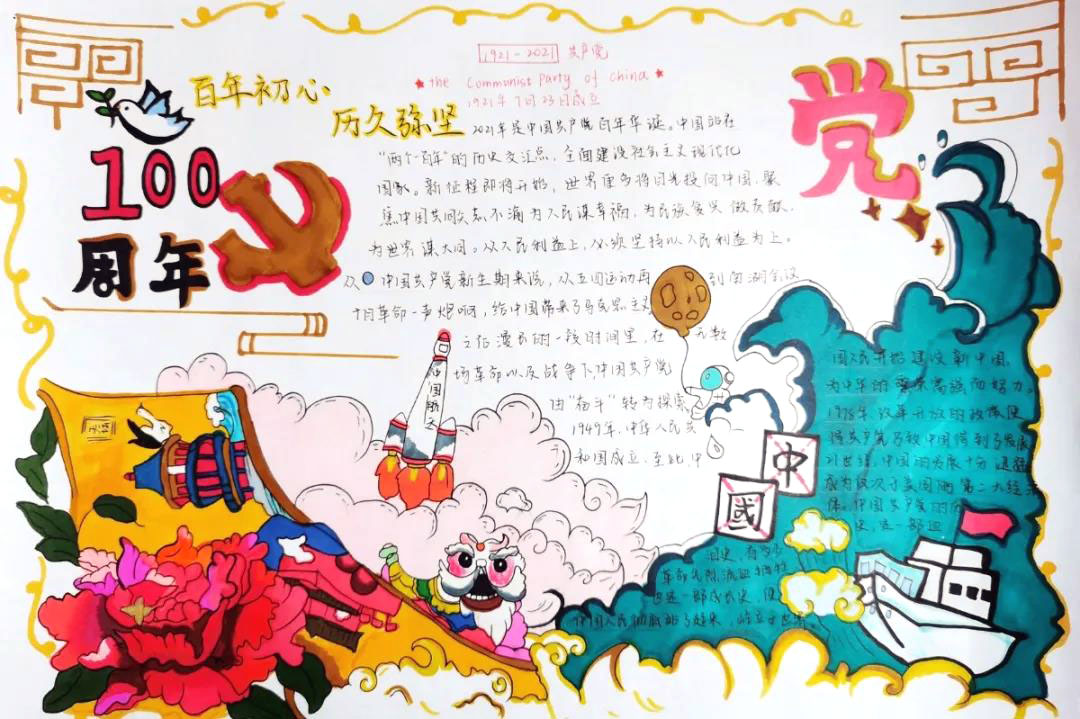 1921-2021 共产党
the Communist Party of China
1921年7月23日成立
百年初心
历久弥坚
党
100
周年
2021年是中国共产党百年华诞。中国站在
"两个一百年"的历史交汇点，全面建设社会主义现代化
国家。新征程即将开始，世界
将目光投向中国，聚
焦中国共
不
为人民谋幸福，为民族复兴做贡献，
为世界谋大同。
人民利益上，必须坚持以人民利益为上。
从
中国共产党新生期来说，从五四运动再
到南湖会议
十月革命一声炮响，给中国带来了马克思主义
之后漫长的一段时间里，在
无数
场革命以及战争下，中国共产党
由"奋斗"转为探索
1949年，中华人民共
和国成立，至此，中
国人民开始建设新中国，
为中华的繁荣富强而努力。
1978年，改革开放的政策使
得共产党
中国得到了发展
21世纪，中国的发展十分迅猛
成为仅次于美国的第二大经济
体。中国共产党的历
史，是一部
泪史，有多少
革命先烈流血牺牲
也是一部成长史，使
中国人民彻底站了起来，屹立于世界。
中国航天
中
國